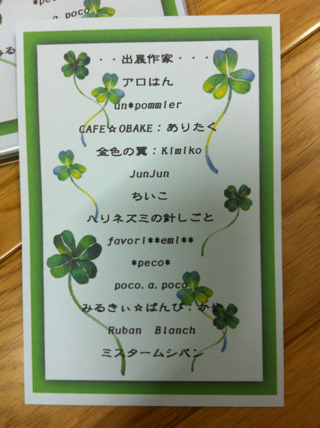 *peco*
poco.a.poco
・・出展作家・・・
アロはん
un*pommier
CAFE☆OBAKE：ありたく
金色の翼：Kimiko
JunJun
ちいこ
ハリネズミの針しごと
favori**emi**
*peco*
poco.a.poco
みるきぃ☆ぱんび：かや
Ruban Blanch
ミスタームシパン